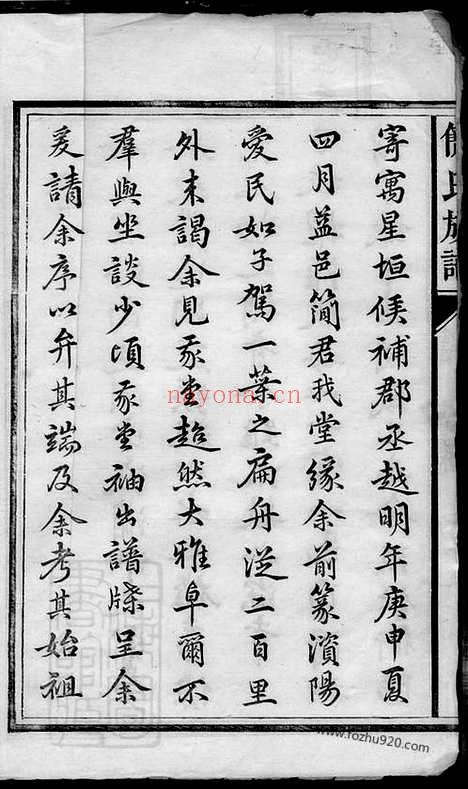 寄寓星垣候補郡丞越明年庚申夏
四月益邑簡君我堂緣余前篆濱陽
愛民如子駕一葉之扁舟泛二百里
外来謁余見我堂超然大雅卓爾不
羣與坐談少頃我堂袖出譜牒呈余
爰請余序以弁其端及余考其始祖
氏族譜
nayona.cn
www.fozhu920.com